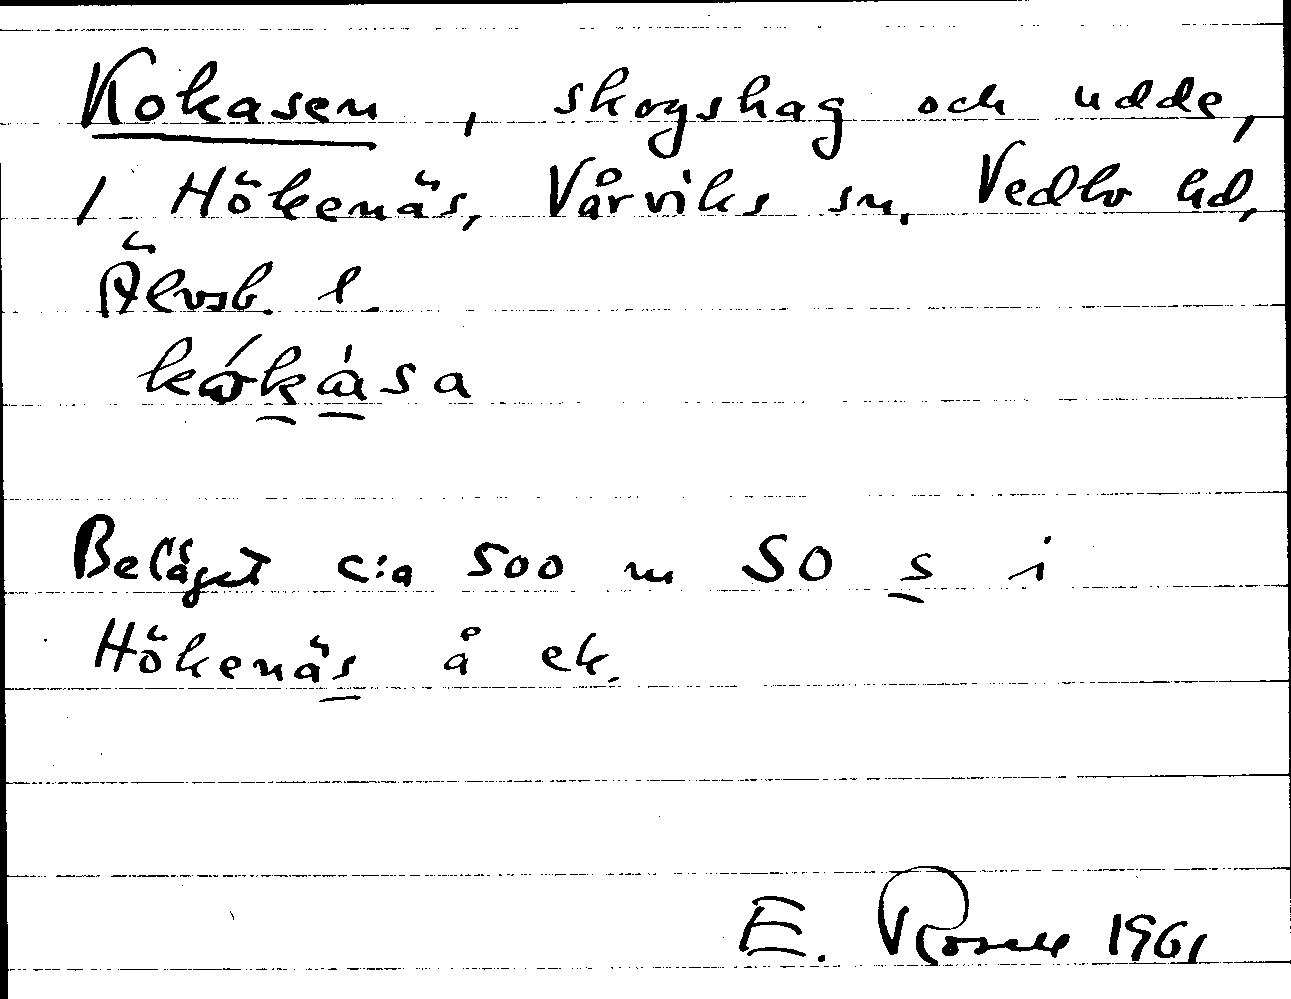 Kokasen, skogshag och udde,
1 Hökenäs, Vårviks sn, Vedbo hd,
Älvsb. l.
Beläget c:a 500 m SO s i
Hökenäs å ek.
E. 1961